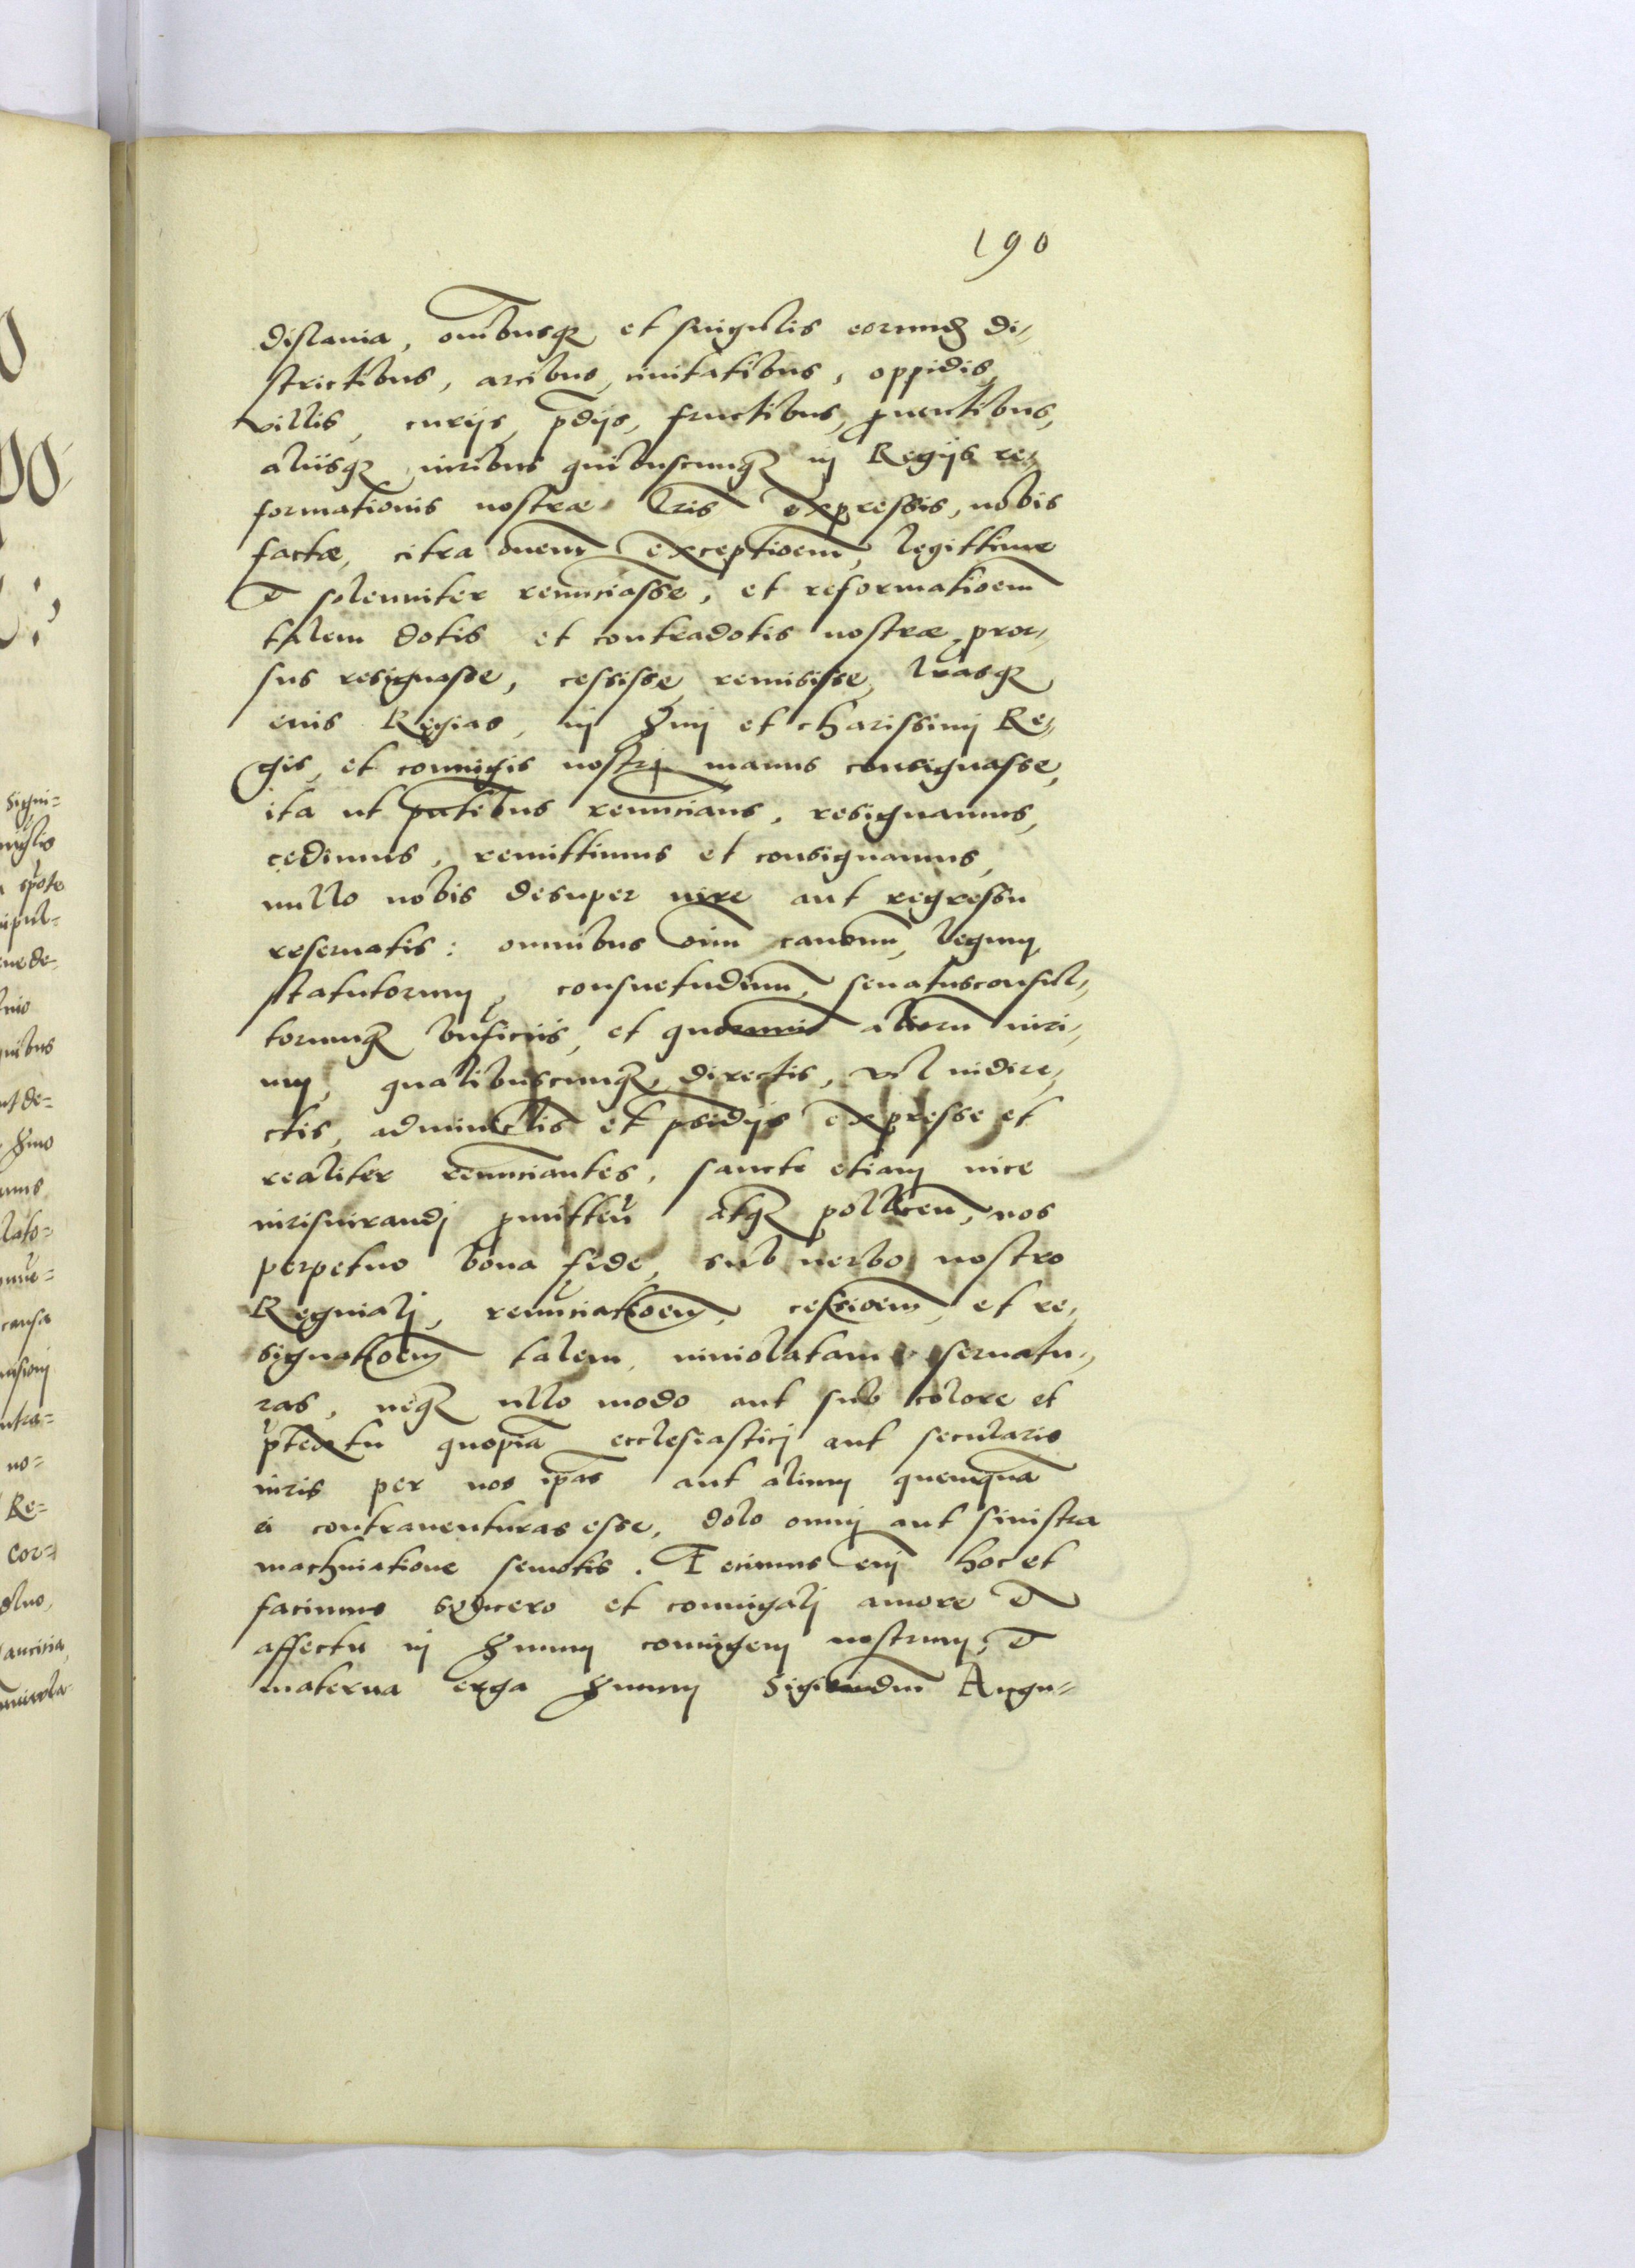 190
dislauia, omibusq3 et singulis eorumd di-
strictibus, arcibus, ciuitatibus, oppidis,
villis, curijs, pdijs, fructibus, puentibus,
alijsq3 iuribus quibuscunq3 in Regijs re-
formationis nostræ lris expressis, nobis
factæ, citra omnem exceptioem, legittime
et solenniter renunciasse, et reformatioem
talem dotis et contradotis nostræ, pror-
sus resignasse, cessisse, remisisse, lrasq3
eius Regias, in Smi et charissimj Re-
gis, et coniugis nostrj manus consignasse,
ita ut pntibus renunciamus, resignamus,
cedimus, remittimus et consignamus,
nullo nobis desuper iure aut regressu
reseruatis: omnibus oim canonum, legum,
statutorum, consuetudinum, senatusconsul-
torumq3 bnficiis, et quorumuis aliorum iuri-
um, qualibuscunq3, directis, vel indire-
ctis, adminiclis et psidijs expresse et
realiter renunciantes, sancte etiam vice
iurisiurandj pmitten atq3 pollicen, nos
perpetuo bona fide, sub verbo nostro
Reginalj, renunciatioem, cessioem, et re-
signatioem talem, inuiolatam seruatu-
ras, neq3 ullo modo aut sub colore et
ptextu quopia ecclesiasticj aut secularis
iuris per nos ipas aut alium quenqua
ei contrauenturas esse, dolo omnj aut sinistra
machinatione semotis. Fecimus em hoc et
facimus syncero et coniugalj amore et
affectu in Smum coniugem nostrum, et
materna erga Smum Sigismdum Augu-
signi-
spote
Re-
cor-
no-